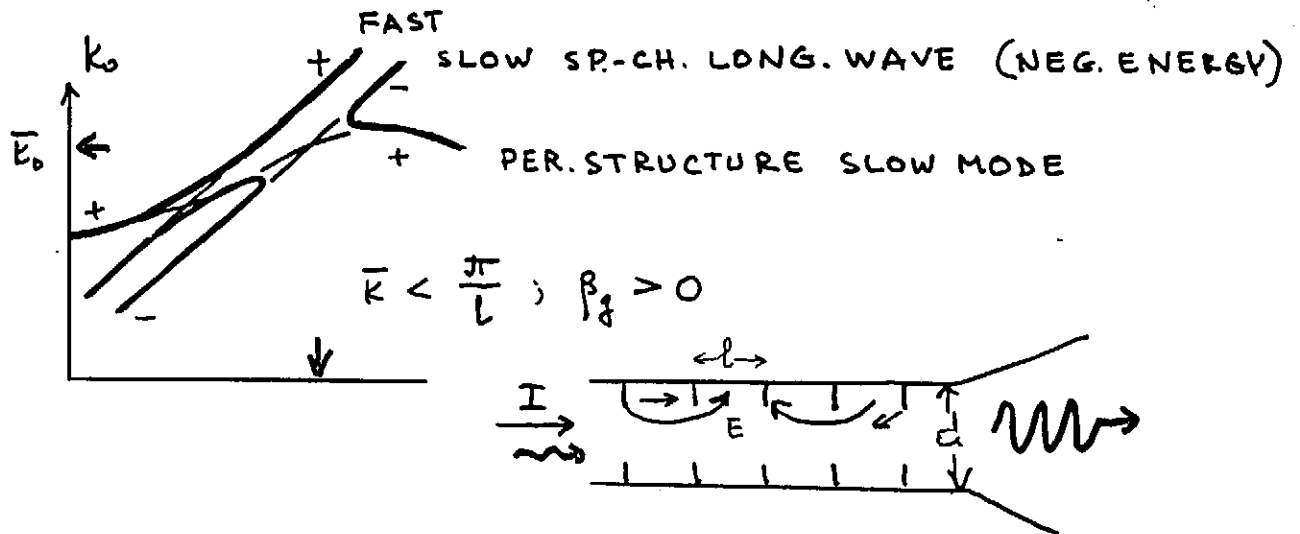 FAST
k₀
+
SLOW SP.-CH. LONG. WAVE (NEG. ENERGY)
-
k̅₀
+
PER. STRUCTURE SLOW MODE
+
-
k̅ < π/l ; β_g > 0
l
I
E
d